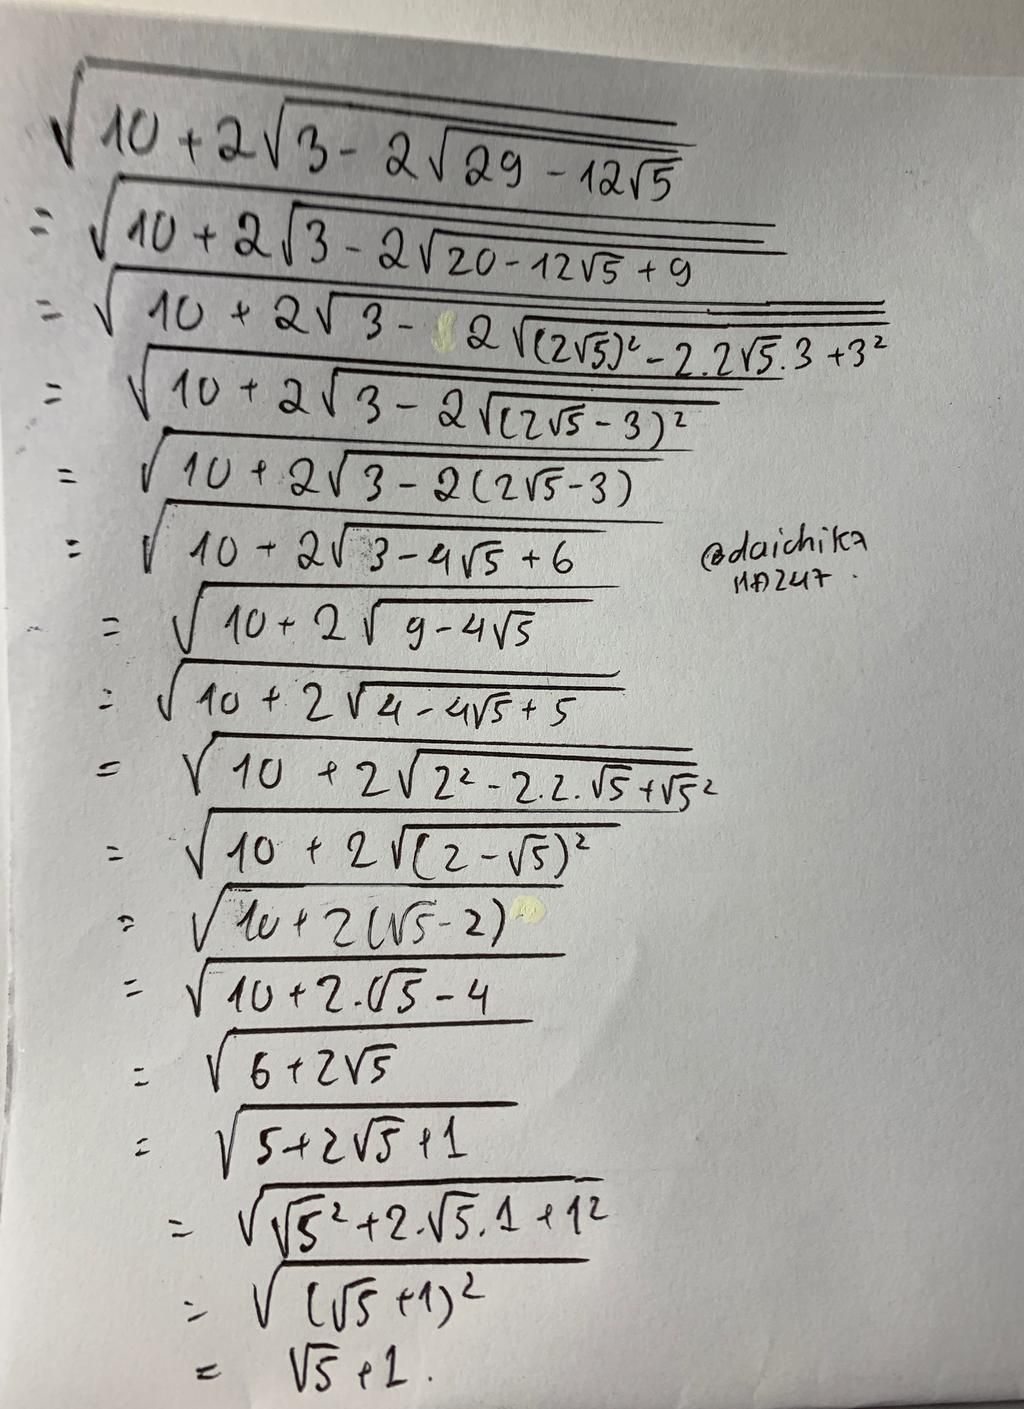 √(10 + 2√(3 - 2√(29 - 12√5)))
= √(10 + 2√(3 - 2√(20 - 12√5 + 9)))
= √(10 + 2√(3 - 2√((2√5)² - 2.2√5.3 + 3²)))
= √(10 + 2√(3 - 2√((2√5 - 3)²)))
= √(10 + 2√(3 - 2(2√5 - 3)))
= √(10 + 2√(3 - 4√5 + 6))
@daichika
MA247.
= √(10 + 2√(9 - 4√5))
= √(10 + 2√(4 - 4√5 + 5))
= √(10 + 2√(2² - 2.2.√5 + √5²))
= √(10 + 2√((2 - √5)²))
= √(10 + 2(√5 - 2))
= √(10 + 2.√5 - 4)
= √(6 + 2√5)
= √(5 + 2√5 + 1)
= √(√5² + 2.√5.1 + 1²)
= √((√5 + 1)²)
= √5 + 1.